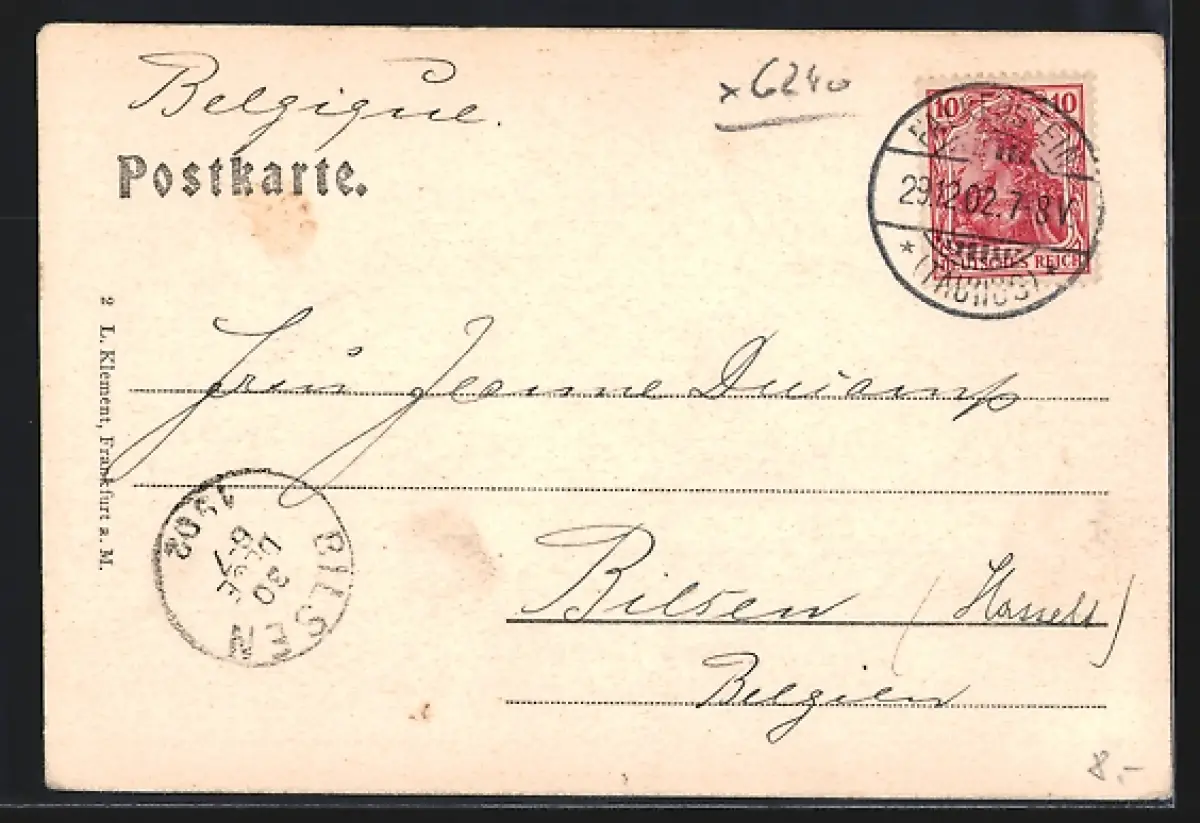 Belgique.
x 6240
Postkarte.
10 10
FALKENSTEIN
29.12.02. 7-8 V
* (TAUNUS) *
DEUTSCHES REICH
Jeanne
2 L. Klement, Frankfurt a. M.
BILSEN
30
1902
Bilsen (Hasselt)
Belgien
8.-